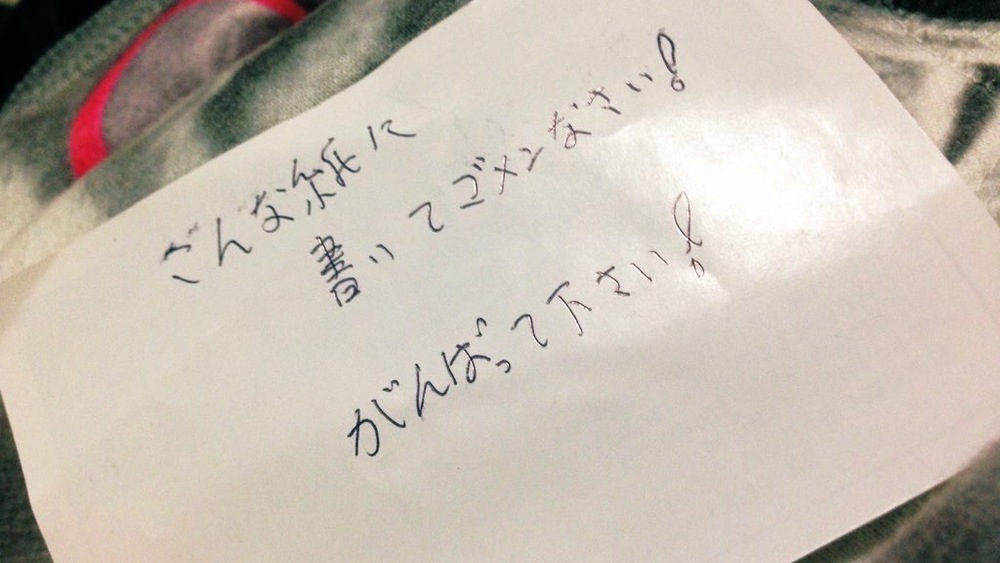 こんな紙に
書いてゴメンなさい!
がんばって下さい!